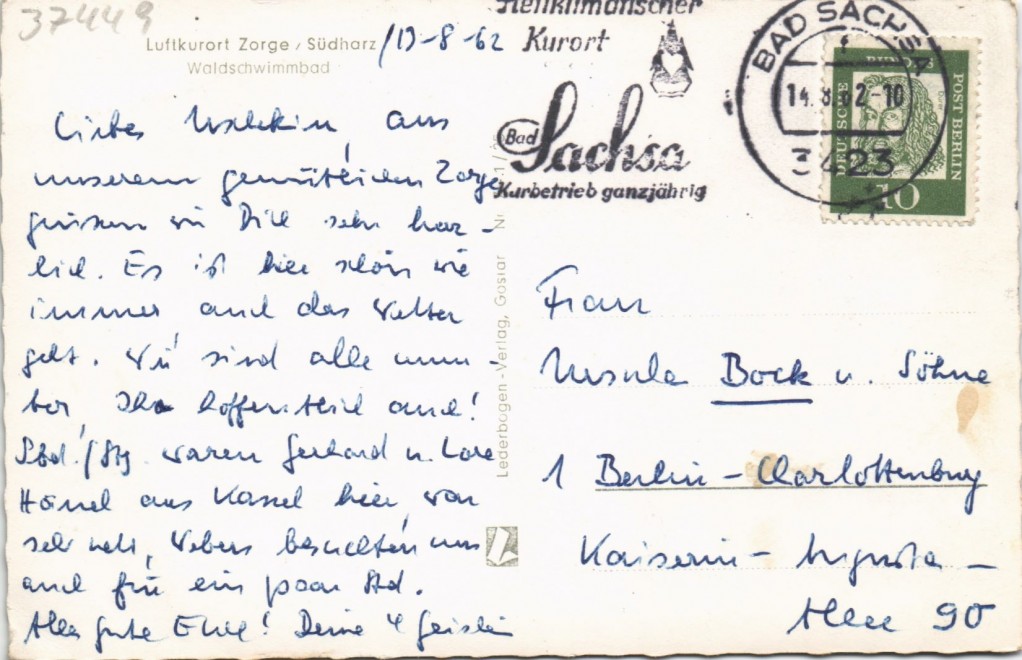 37449
Luftkurort Zorge, Südharz /13-8-62
Waldschwimmbad
Liebes aus
unserem gemütlichen Zorge
grüssen wir Dich sehr herz-
lich. Es ist hier schön wie
immer und das Wetter
geht. Wir sind alle mun-
ter, Ihr hoffentlich auch!
waren Gerhard u. Lore
aus Kassel hier, war
sehr nett, Webers besuchten uns
auch für ein paar Std.
Alles Gute Euch! Deine 4
Lederbogen-Verlag, Goslar
Heilklimatischer
Kurort
Bad Sachsa
Kurbetrieb ganzjährig
BAD SACHSA
14.8.62-10
3423
DEUTSCHE BUNDESPOST BERLIN
10
Frau
Ursula Bock u. Söhne
1 Berlin-Charlottenburg
Kaiserin-Augusta-
Allee 90